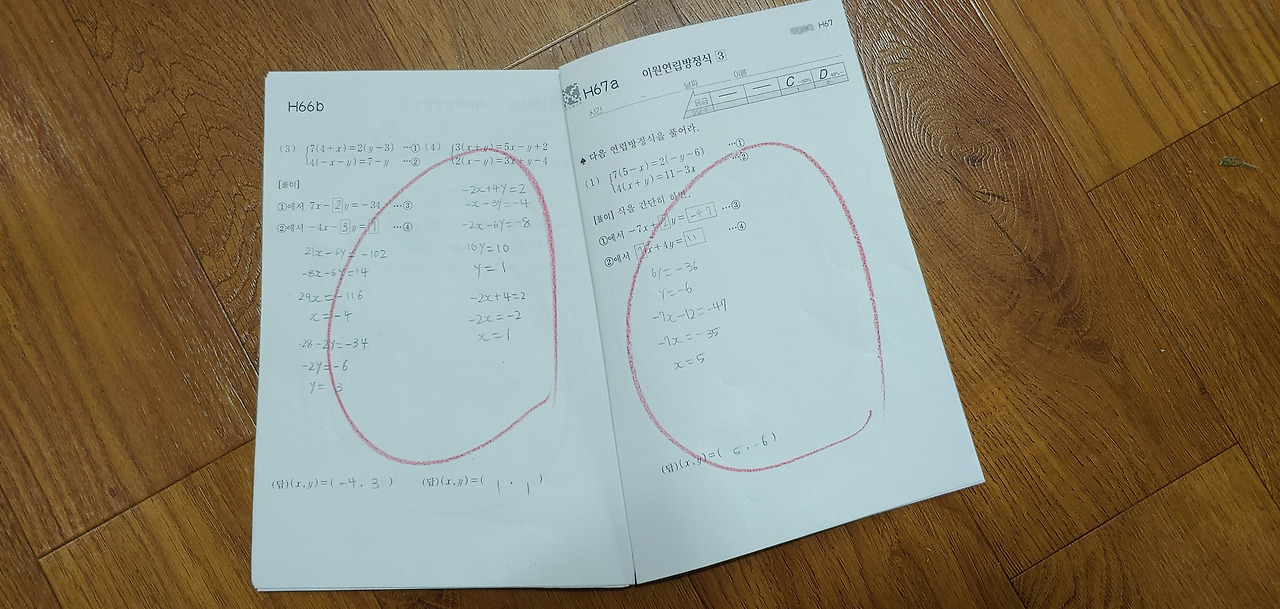 H66b
(3) {7(4+x)=2(y-3) …① (4) {3(x+y)=5x-y+2
{4(-x-y)=7-y …② {2(x-y)=3x+y-4
[풀이]
①에서 7x-2y=-34 …③
②에서 -4x-3y=7 …④
21x-6y=-102
-8x-6y=14
29x=-116
x=-4
-28-2y=-34
-2y=-6
y=3
-2x+4y=2
-x-3y=-4
-2x-6y=-8
10y=10
y=1
-2x+4=2
-2x=-2
x=1
(답)(x,y)=(-4,3) (답)(x,y)=(1,1)
H67
H67a 이원연립방정식 3
시각 날짜 이름
등급 — — C D
♠ 다음 연립방정식을 풀어라.
(1) {7(5-x)=2(-y-6) …①
{4(x+y)=11-3x …②
[풀이] 식을 간단히 하면,
①에서 -7x+2y=-47 …③
②에서 7x+4y=11 …④
6y=-36
y=-6
-7x-12=-47
-7x=-35
x=5
(답)(x,y)=(5,-6)